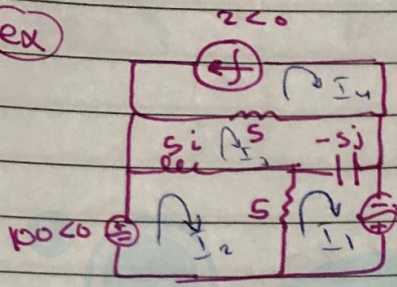 ex
2<0
I4
5i 5 I3 -5j
5
100<0 I2 I1